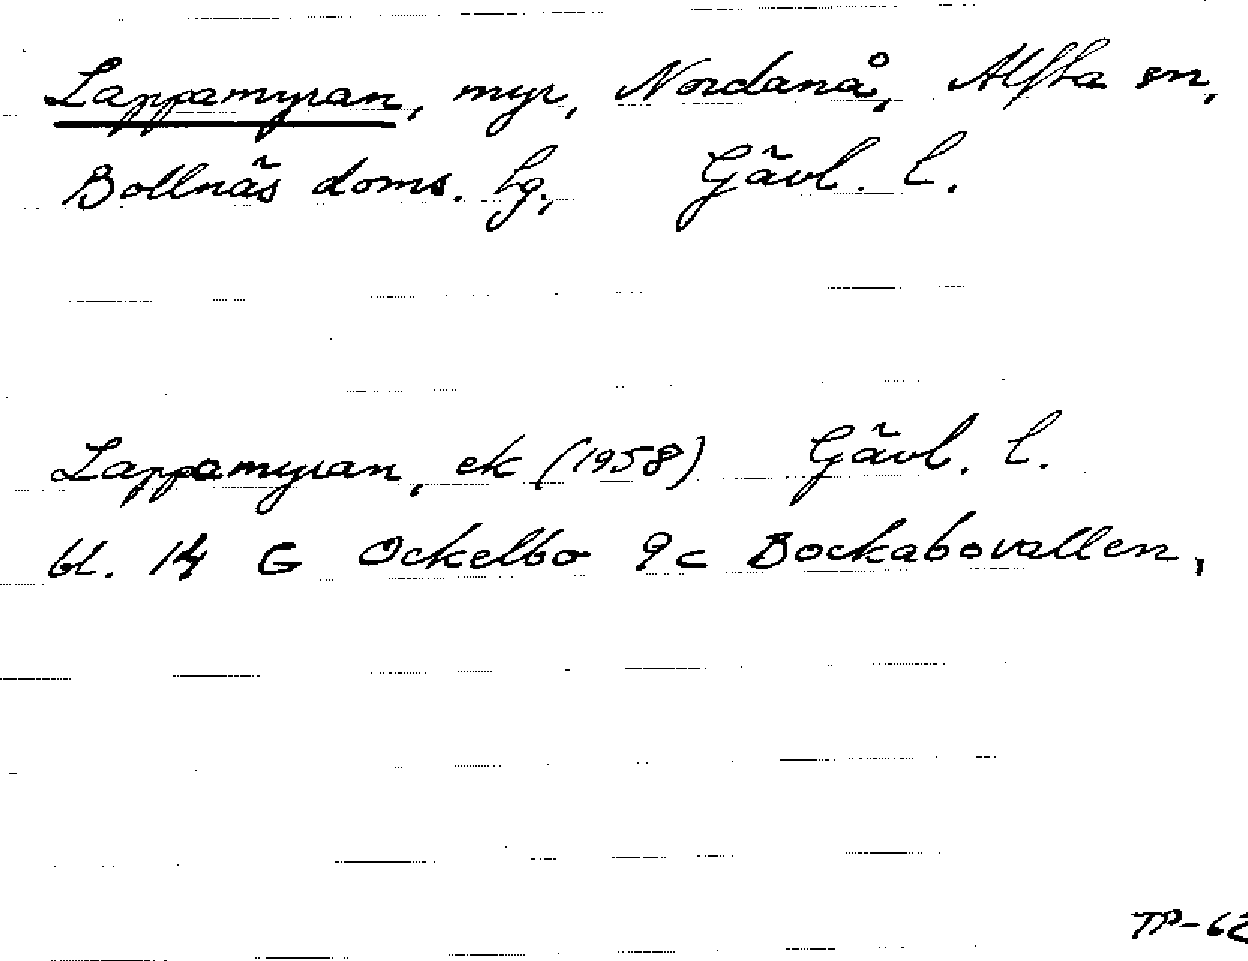 Lappamyran, myr, Nordanå, Alfta sn,
Bollnäs doms. hg, Gävl. l.
Lappamyran, ek (1958) Gävl. l.
bl. 14 G Ockelbo 9c Bockabovallen,
TP-62